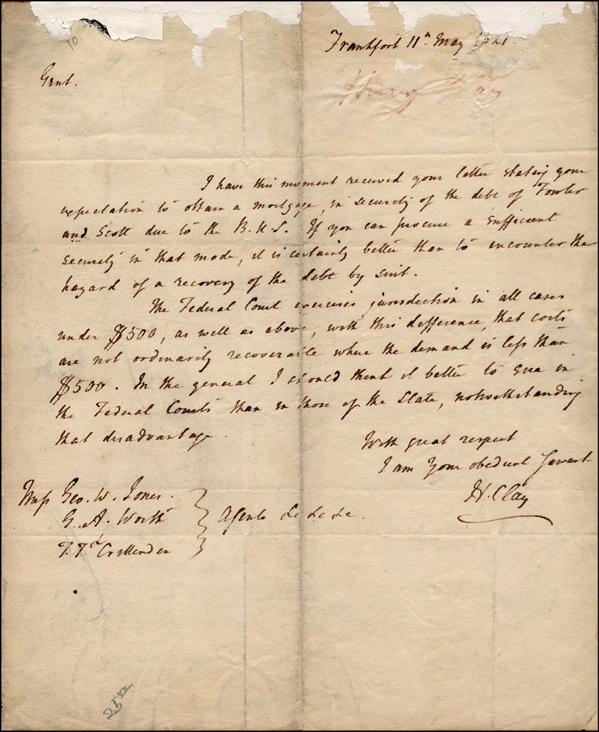 10
Frankfort 11th May 1821.
Gent.
Henry Clay
I have this moment received your letter stating your
expectation to obtain a mortgage, in security of the debt of Fowler
and Scott due to the B. U.S. If you can procure a sufficient
security in that mode, it is certainly better than to encounter the
hazard of a recovery of the debt by suit.
The Federal Court exercises jurisdiction in all cases
under $500, as well as above, with this difference, that costs
are not ordinarily recoverable where the demand is less than
$500. In the general I should think it better to sue in
the Federal Courts than in those of the State, notwithstanding
that disadvantage.
With great respect
I am Your obedient Servant
H. Clay
Mess Geo. W. Jones.
G. A. Worth
T. Td Crittenden
Agents &c &c &c.
25